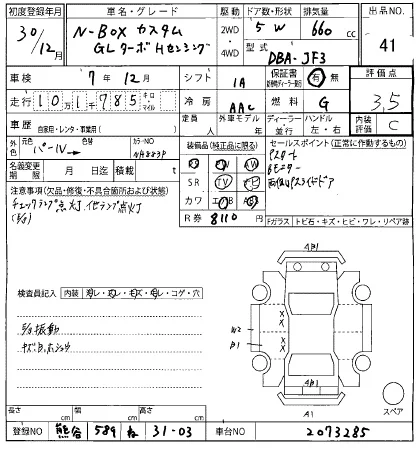 初度登録年月 車名・グレード 駆動 ドア数・形状 排気量 出品NO.
30/12月 N-BOX カスタム GLターボHセンシング 2WD 4WD 5 W 660 cc 41
型式 DBA-JF3
車検 7年12月 シフト IA 保証書 有・無 評価点
走行 101785 キロ マイル 冷房 AAC 燃料 G 3.5
車歴 自家用・レンタ・事業用( ) 定員 人 外車モデル 年 ディーラー 並行 ハンドル 左・右 内装評価 C
外色 元色 パール カラーNO NH883P 装備品(純正品に限る) セールスポイント(正常に作動するもの)
名義変更期限 月 日迄 積載 t SR TV ナビ Pスタート
Bモニター
両側Pスライドドア
注意事項(欠品・修復・不具合箇所および状態) カワ
チェックランプ点灯 他ランプ点灯
R券 8110 円 Fガラス トビ石・キズ・ヒビ・ワレ・リペア跡
検査員記入 内装 コゲ・穴
振動
W2
B1
A1
スペア
長さ cm 幅 cm 高さ cm
登録NO 熊谷 589 ね 31-03 車台NO 2073285